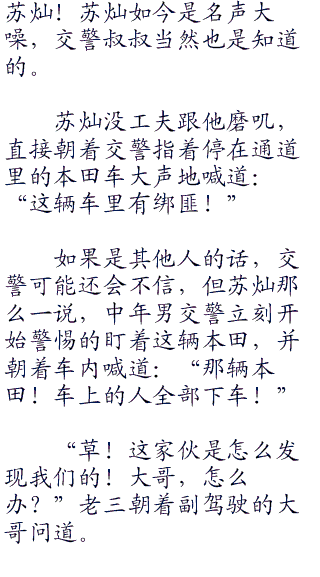 苏灿！苏灿如今是名声大
噪，交警叔叔当然也是知道
的。
苏灿没工夫跟他磨叽，
直接朝着交警指着停在通道
里的本田车大声地喊道：
“这辆车里有绑匪！”
如果是其他人的话，交
警可能还会不信，但苏灿那
么一说，中年男交警立刻开
始警惕的盯着这辆本田，并
朝着车内喊道：“那辆本
田！车上的人全部下车！”
“草！这家伙是怎么发
现我们的！大哥，怎么
办？”老三朝着副驾驶的大
哥问道。